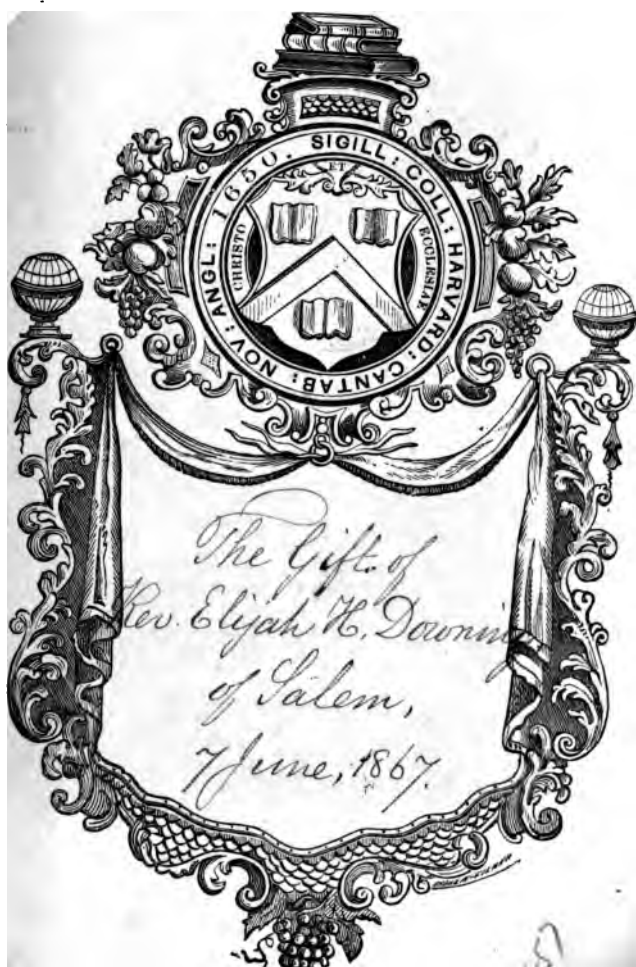 SIGILL: COLL: HARVARD: CANTAB: NOV: ANGL: 1650.
ET
CHRISTO
ECCLESIAE
The Gift of
Rev. Elijah H. Downing
of Salem,
7 June, 1867.